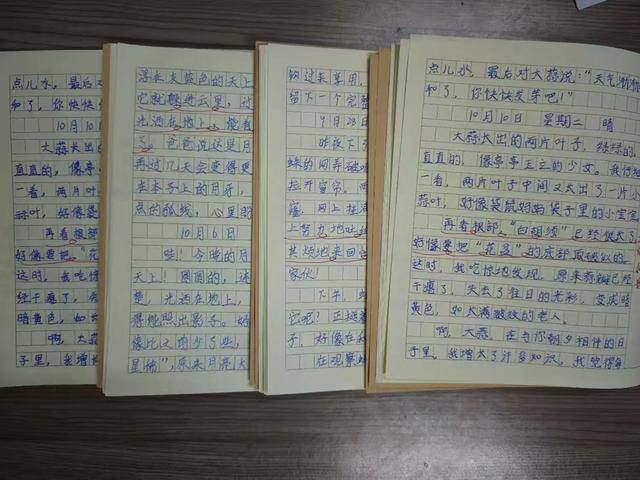 点儿水，最后
和了，你快快
10月10
大蒜长出
直直的，像亭
一看，两片叶
蒜叶，好像袋
再看根部
好像要把“花
这时，我吃惊
经干瘪了，失
暗黄色，如
啊，大蒜
子里，我增长
浮在灰蓝色的天上
它就躲进云里，过
光洒在地上，能看
了。爸爸说这是月
再过几天会变得更
在本子上的月牙，
点的弧线，心里那
10月6日
哇！今晚的月
天上！圆圆的，
楚，光洒在地上，
得能照出影子。好
像比之前少了些，
星稀”，原来月亮大
钩过来享用，
留下一个完整
9月28日
昨夜下
蛛的网弄破
拉开窗帘，
窿，网上挂满
上努力地吐
其烦地来回
家伙！
下午，
它呢？正
子，好像在
在观察
点儿水，最后对大蒜说：“天气渐渐
和了，你快快发芽吧！”
10月10日 星期二 晴
大蒜长出的两片叶子，绿绿的，
直直的，像亭亭玉立的少女。我仔细
一看，两片叶子中间又长出了一片小
蒜叶，好像袋鼠妈妈袋子里的小宝宝
再看根部，“白胡须”已经很长了
好像要把“花盆”的底部顶破似的。
这时，我吃惊地发现，原来蒜瓣已经
干瘪了，失去了往日的光彩，变成暗
黄色，如太满皱纹的老人。
啊，大蒜，在与你朝夕相伴的日
子里，我增长了许多知识，我觉得每